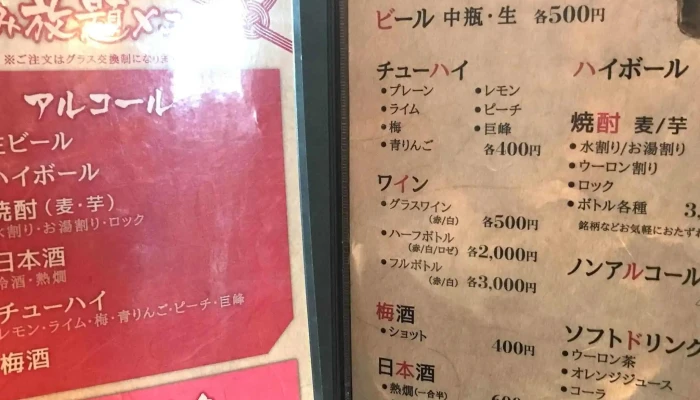 み放題メ
※ご注文はグラス交換制になりま
アルコール
生ビール
ハイボール
焼酎(麦・芋)
水割り・お湯割り・ロック
日本酒
冷酒・熱燗
チューハイ
レモン・ライム・梅・青りんご・ピーチ・巨峰
梅酒
ビール 中瓶・生 各500円
チューハイ
•プレーン •レモン
•ライム •ピーチ
•梅 •巨峰
•青りんご 各400円
ワイン
•グラスワイン
(赤/白) 各500円
•ハーフボトル
(赤/白/ロゼ) 各2,000円
•フルボトル
(赤/白) 各3,000円
梅酒
•ショット 400円
日本酒
•熱燗(一合半)
ハイボール
焼酎 麦/芋
•水割り/お湯割り
•ウーロン割り
•ロック
•ボトル各種 3,
銘柄などお気軽におたずね
ノンアルコール
ソフトドリンク
•ウーロン茶
•オレンジジュース
•コーラ